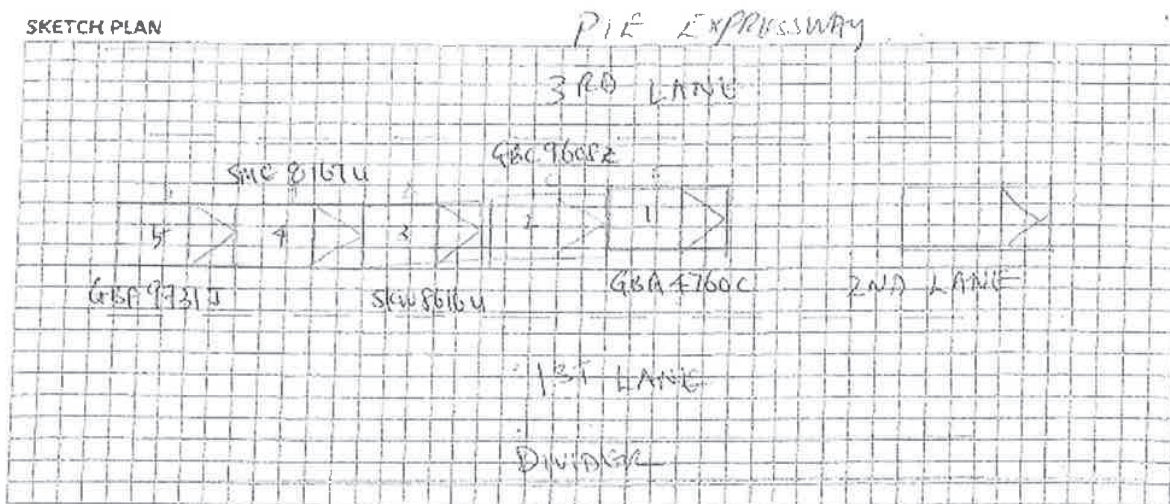 SKETCH PLAN
PIE EXPRESSWAY
3RD LANE
GBC9608Z
SMC8167U
5 4 3 2 1
GBA9731J SKW8616U GBA4760C 2ND LANE
1ST LANE
DIVIDER